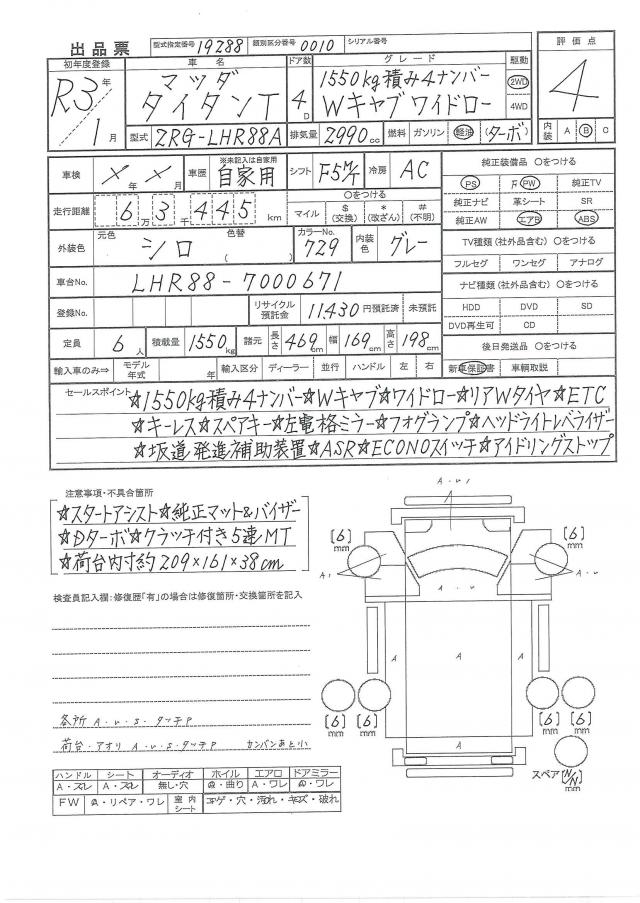 出品票 型式指定番号 19288 類別区分番号 0010 シリアル番号
初年度登録 車名 ドア数 グレード 駆動 評価点
R3年 1月 マツダ タイタンT 4D 1550kg積み4ナンバー Wキャブワイドロー 2WD 4WD 4
型式 ZRG-LHR88A 排気量 2990cc 燃料 ガソリン 軽油 (ターボ) 内装 A B C
車検 X年 X月 車歴 ※未記入は自家用 自家用 シフト F5M/T 冷房 AC 純正装備品 〇をつける
PS F PW 純正TV
走行距離 6万3千445km 〇をつける マイル $(交換) *(改ざん) #(不明) 純正ナビ 革シート SR
純正AW エアB ABS
外装色 元色 シロ 色替 ( ) カラーNo. 729 内装色 グレー TV種類(社外品含む) 〇をつける
フルセグ ワンセグ アナログ
車台No. LHR88-7000671 ナビ種類(社外品含む) 〇をつける
登録No. リサイクル預託金 11430円預託済 未預託 HDD DVD SD
DVD再生可 CD
定員 6人 積載量 1550kg 諸元 長さ 469cm 幅 169cm 高さ 198cm 後日発送品 〇をつける
輸入車のみ⇒ モデル年式 年 輸入区分 ディーラー 並行 ハンドル 左 右 新車保証書 車輌取説
セールスポイント
☆1550kg積み4ナンバー☆Wキャブ☆ワイドロー☆リアWタイヤ☆ETC
☆キーレス☆スペアキー☆左電格ミラー☆フォグランプ☆ヘッドライトレベライザー
☆坂道発進補助装置☆ASR☆ECONOスイッチ☆アイドリングストップ
注意事項・不具合箇所
☆スタートアシスト☆純正マット&バイザー
☆Dターボ☆クラッチ付き5速MT
☆荷台内寸約209×161×38cm
検査員記入欄:修復歴「有」の場合は修復箇所・交換箇所を記入
各所 A・U・S・タッチP
荷台・アオリ A・U・S・タッチP カンバンあと小
A・U・S
[6]mm [6]mm
A・ A・U
A A A
[6]mm [6]mm [6]mm [6]mm
A
スペア[N/N]mm
ハンドル シート オーディオ ホイル エアロ ドアミラー
A・スレ A・スレ 無し・穴 A・曲り A・ワレ A・ワレ
FW A・リペア・ワレ 室内シート コゲ・穴・汚れ・キズ・破れ